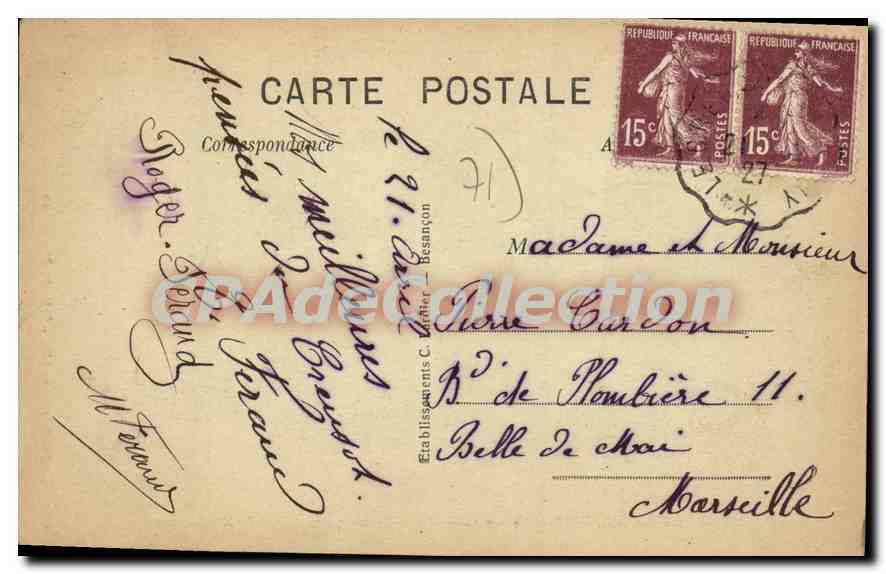 CARTE POSTALE
Correspondance
A
RÉPUBLIQUE FRANÇAISE
15c
POSTES
RÉPUBLIQUE FRANÇAISE
15c
POSTES
27
71
le 21. Avril
Mes meilleures
pensées du Creusot.
Ferand
Roger. Ferand
M Ferand
Etablissements C. Lardier — Besançon
Madame et Monsieur
Pierre Cardon
Bd de Plombière 11.
Belle de Mai
Marseille
CPAdeCollection